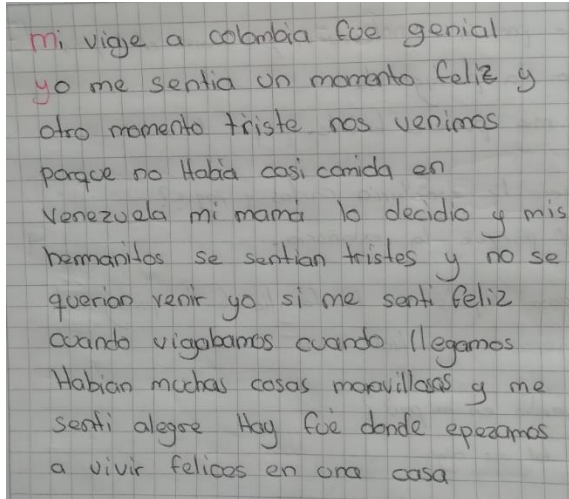 mi viaje a colombia fue genial
yo me sentia un momento feliz y
otro momento triste nos venimos
porque no Habia casi comida en
Venezuela mi mamá lo decidio y mis
hermanitos se sentian tristes y no se
querian venir yo si me senti feliz
cuando viajabamos cuando llegamos
Habian muchas cosas maravillosas y me
senti alegre Hay fue donde epezamos
a vivir felices en una casa